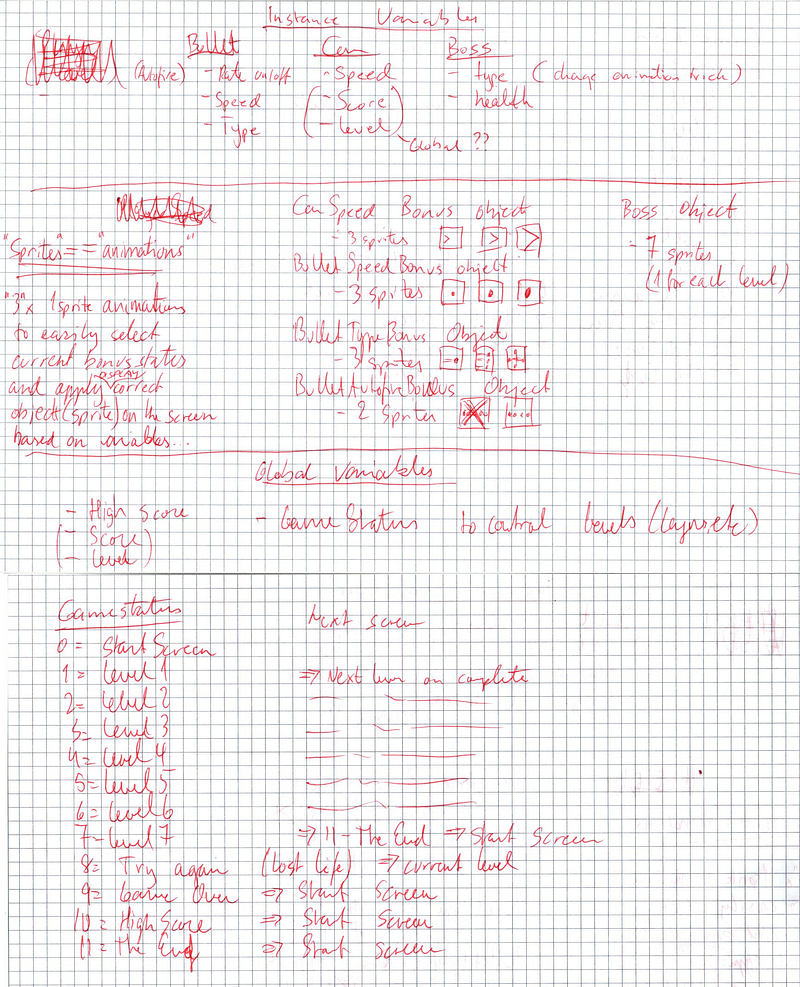 Instance Variables
Bullet Can Boss
(Autofire) - Rate on/off - Speed - type (change animation trick)
- Speed (- Score - health
- Type - level)
Global ??
"Sprites" == "animations"
"3" x 1 sprite animations
to easily select
current bonus states
and apply DISPLAY correct
object (sprite) on the screen
based on variables...
Can Speed Bonus object
- 3 sprites
Bullet Speed Bonus object
- 3 sprites
Bullet Type Bonus Object
- 3 sprites
Bullet Autofire Bonus Object
- 2 Sprites
Boss Object
- 7 sprites
(1 for each level)
Global Variables
- High score - GameStatus to control levels (layouts etc)
(- Score)
(- level)
Gamestatus Next screen
0 = Start Screen
1 = Level 1 => Next level on complete
2 = level 2
3 = level 3
4 = level 4
5 = level 5
6 = level 6
7 = level 7 => 11 - The End => Start Screen
8 = Try again (lost life) => current level
9 = Game Over => Start Screen
10 = High Score => Start Screen
11 = The End => Start screen